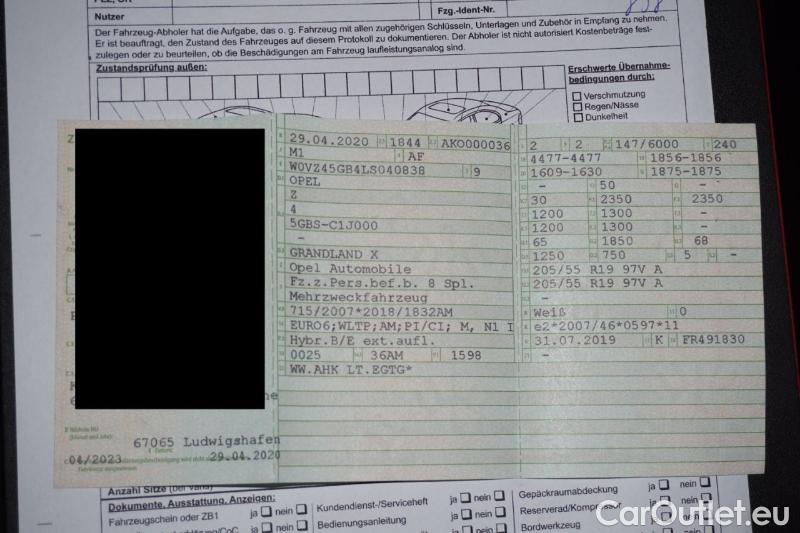 Nutzer
Fzg.-Ident-Nr.
Der Fahrzeug-Abholer hat die Aufgabe, das o. g. Fahrzeug mit allen zugehörigen Schlüsseln, Unterlagen und Zubehör in Empfang zu nehmen.
Er ist beauftragt, den Zustand des Fahrzeuges auf diesem Protokoll zu dokumentieren. Der Abholer ist nicht autorisiert Kostenbeträge fest-
zulegen oder zu beurteilen, ob die Beschädigungen am Fahrzeug laufleistungsanalog sind.
Zustandsprüfung außen:
Erschwerte Übernahme-
bedingungen durch:
Verschmutzung
Regen/Nässe
Dunkelheit
29.04.2020 1844 AKO000036
M1 AF
W0VZ45GB4LS040838 9
OPEL
Z
4
5GBS-C1J000
–
GRANDLAND X
Opel Automobile
Fz.z.Pers.bef.b. 8 Spl.
Mehrzweckfahrzeug
715/2007*2018/1832AM
EURO6;WLTP;AM;PI/CI; M, N1 I
Hybr.B/E ext.aufl.
0025 36AM 1598
WW.AHK LT.EGTG*
2 2 147/6000 240
4477-4477 1856-1856
1609-1630 1875-1875
– 50 –
30 2350 2350
1200 1300 –
1200 1300 –
65 1850 68
1250 750 5 –
205/55 R19 97V A
205/55 R19 97V A
–
Weiß 0
e2*2007/46*0597*11
31.07.2019 K FR491830
–
67065 Ludwigshafen
04/2023
29.04.2020
Anzahl Sitze (bei Vans)
Dokumente, Ausstattung, Anzeigen:
Fahrzeugschein oder ZB1 ja nein
Kundendienst-/Serviceheft ja nein
Bedienungsanleitung ja nein
Gepäckraumabdeckung ja nein
Reserverad/Kompressor ja nein
Bordwerkzeug
CarOutlet.eu